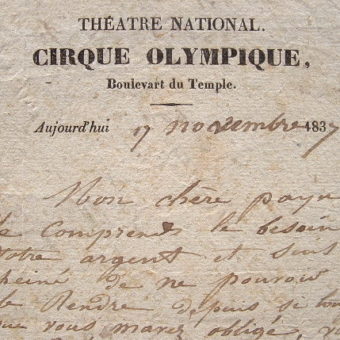 THÉATRE NATIONAL.
CIRQUE OLYMPIQUE,
Boulevart du Temple.
Aujourd'hui 17 novembre 1837
Mon chère
Comprends le besoin
votre argent et suis
peiné de ne pouvoir
le Rendre depuis si
que vous mavez obligé,